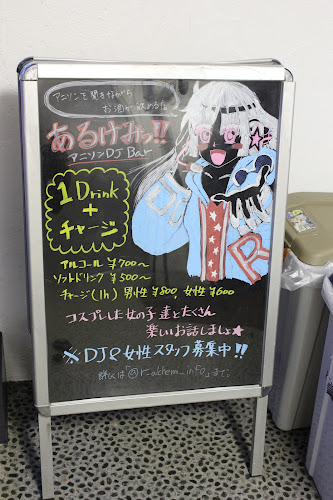 アニソンを聞きながら
お酒が飲める店
あるけみっ!!
アニソンDJ Bar
1 Drink
+
チャージ
アルコール ¥700〜
ソフトドリンク ¥500〜
チャージ(1h) 男性 ¥800, 女性 ¥600
コスプレした女の子達とたくさん
楽しいお話しましょ★
※DJ&女性スタッフ募集中!!
詳しくは「@r_alchem_info」まで。
DJ
R